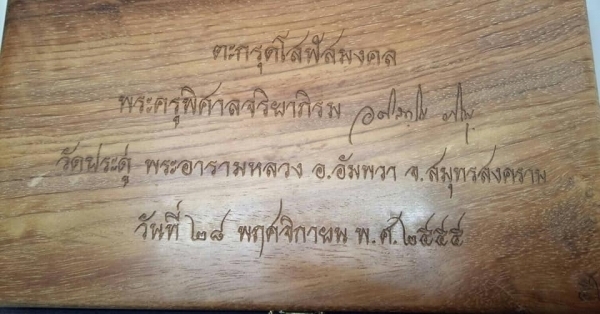 ตะกรุดโสฬสมงคล
พระครูพิศาลจริยาภิรม
วัดประดู่ พระอารามหลวง อ.อัมพวา จ.สมุทรสงคราม
วันที่ ๒๘ พฤศจิกายน พ.ศ.๒๕๕๕